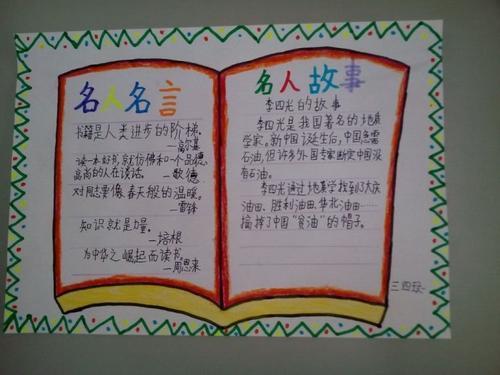 名人名言
书籍是人类进步的阶梯。
—高尔基
读一本好书,就仿佛和一个品德
高高的人在谈话。—歌德
对同志要像春天般的温暖。
—雷锋
知识就是力量。
—培根
为中华之崛起而读书。
—周恩来
名人故事
李四光的故事
李四光是我国著名的地质
学家。新中国诞生后,中国急需
石油,但许多外国专家断定中国没
有石油。
李四光通过地质学找到了大庆
油田、胜利油田、华北油田……
摘掉了中国“贫油”的帽子。
三四班